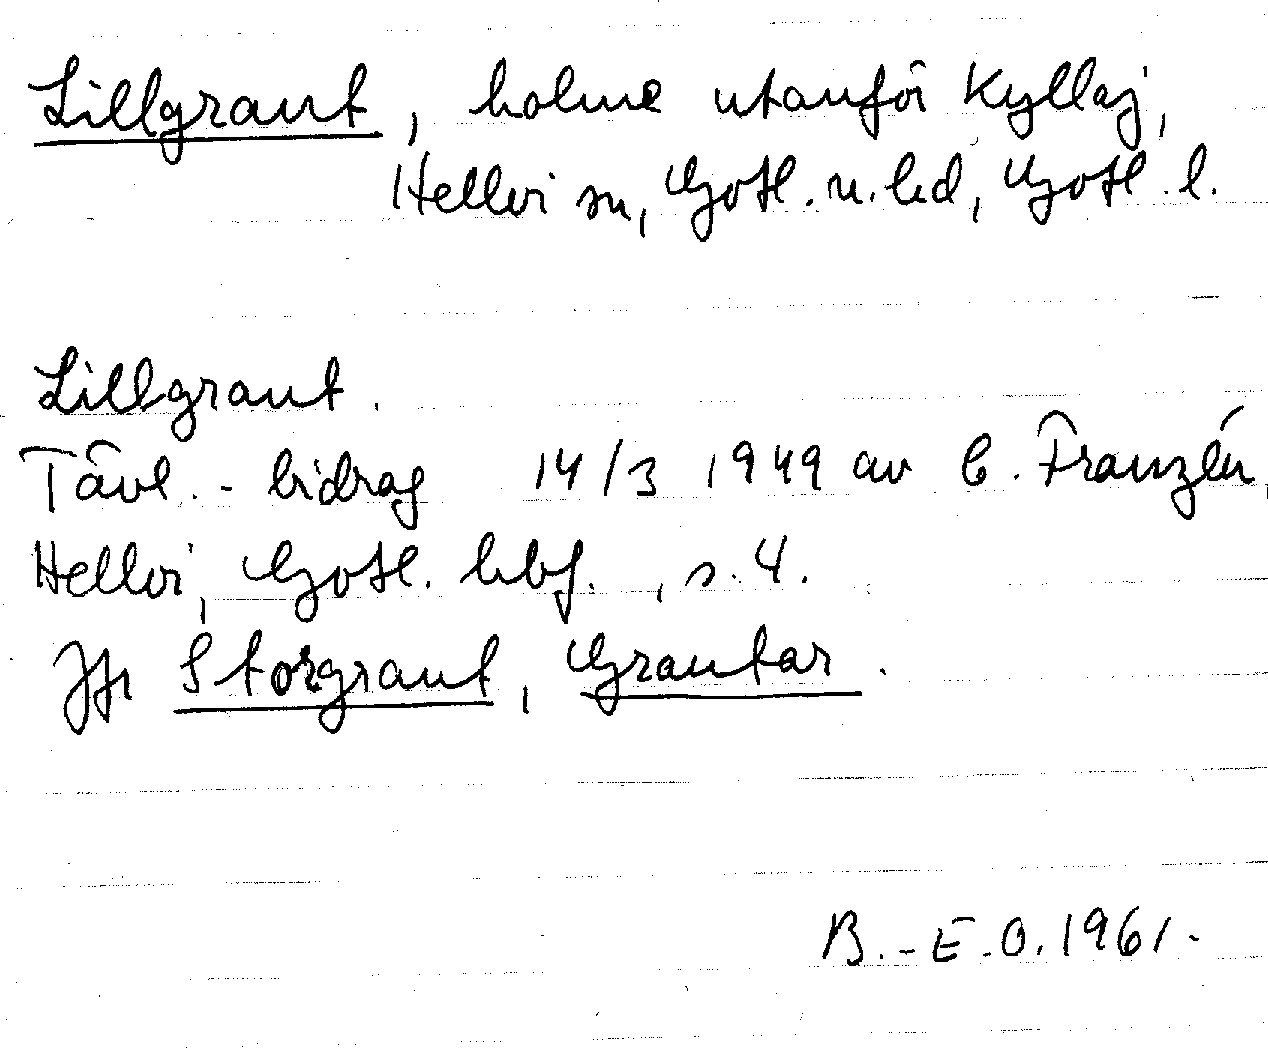 Lillgraut, holme utanför Kyllaj,
Hellvi sn, Gotl. n. hd, Gotl. l.
Lillgraut.
Tävl.-bidrag 14/3 1949 av C. Franzén
Hellvi, Gotl. hbf., s. 4.
Jfr Storgraut, Grautar.
B.-E.O. 1961.